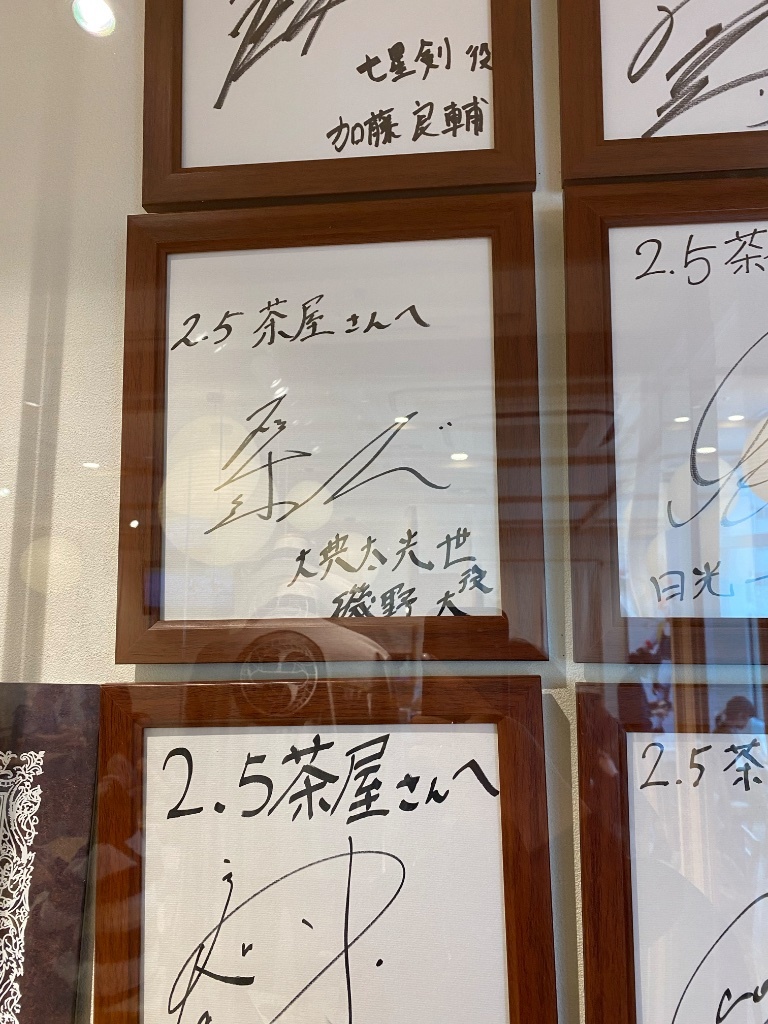 七星剣 役
加藤 良輔
2.5 茶屋さんへ
大典太光世
役
磯野 大
2.5 茶
日光一
2.5茶屋さんへ
2.5 茶